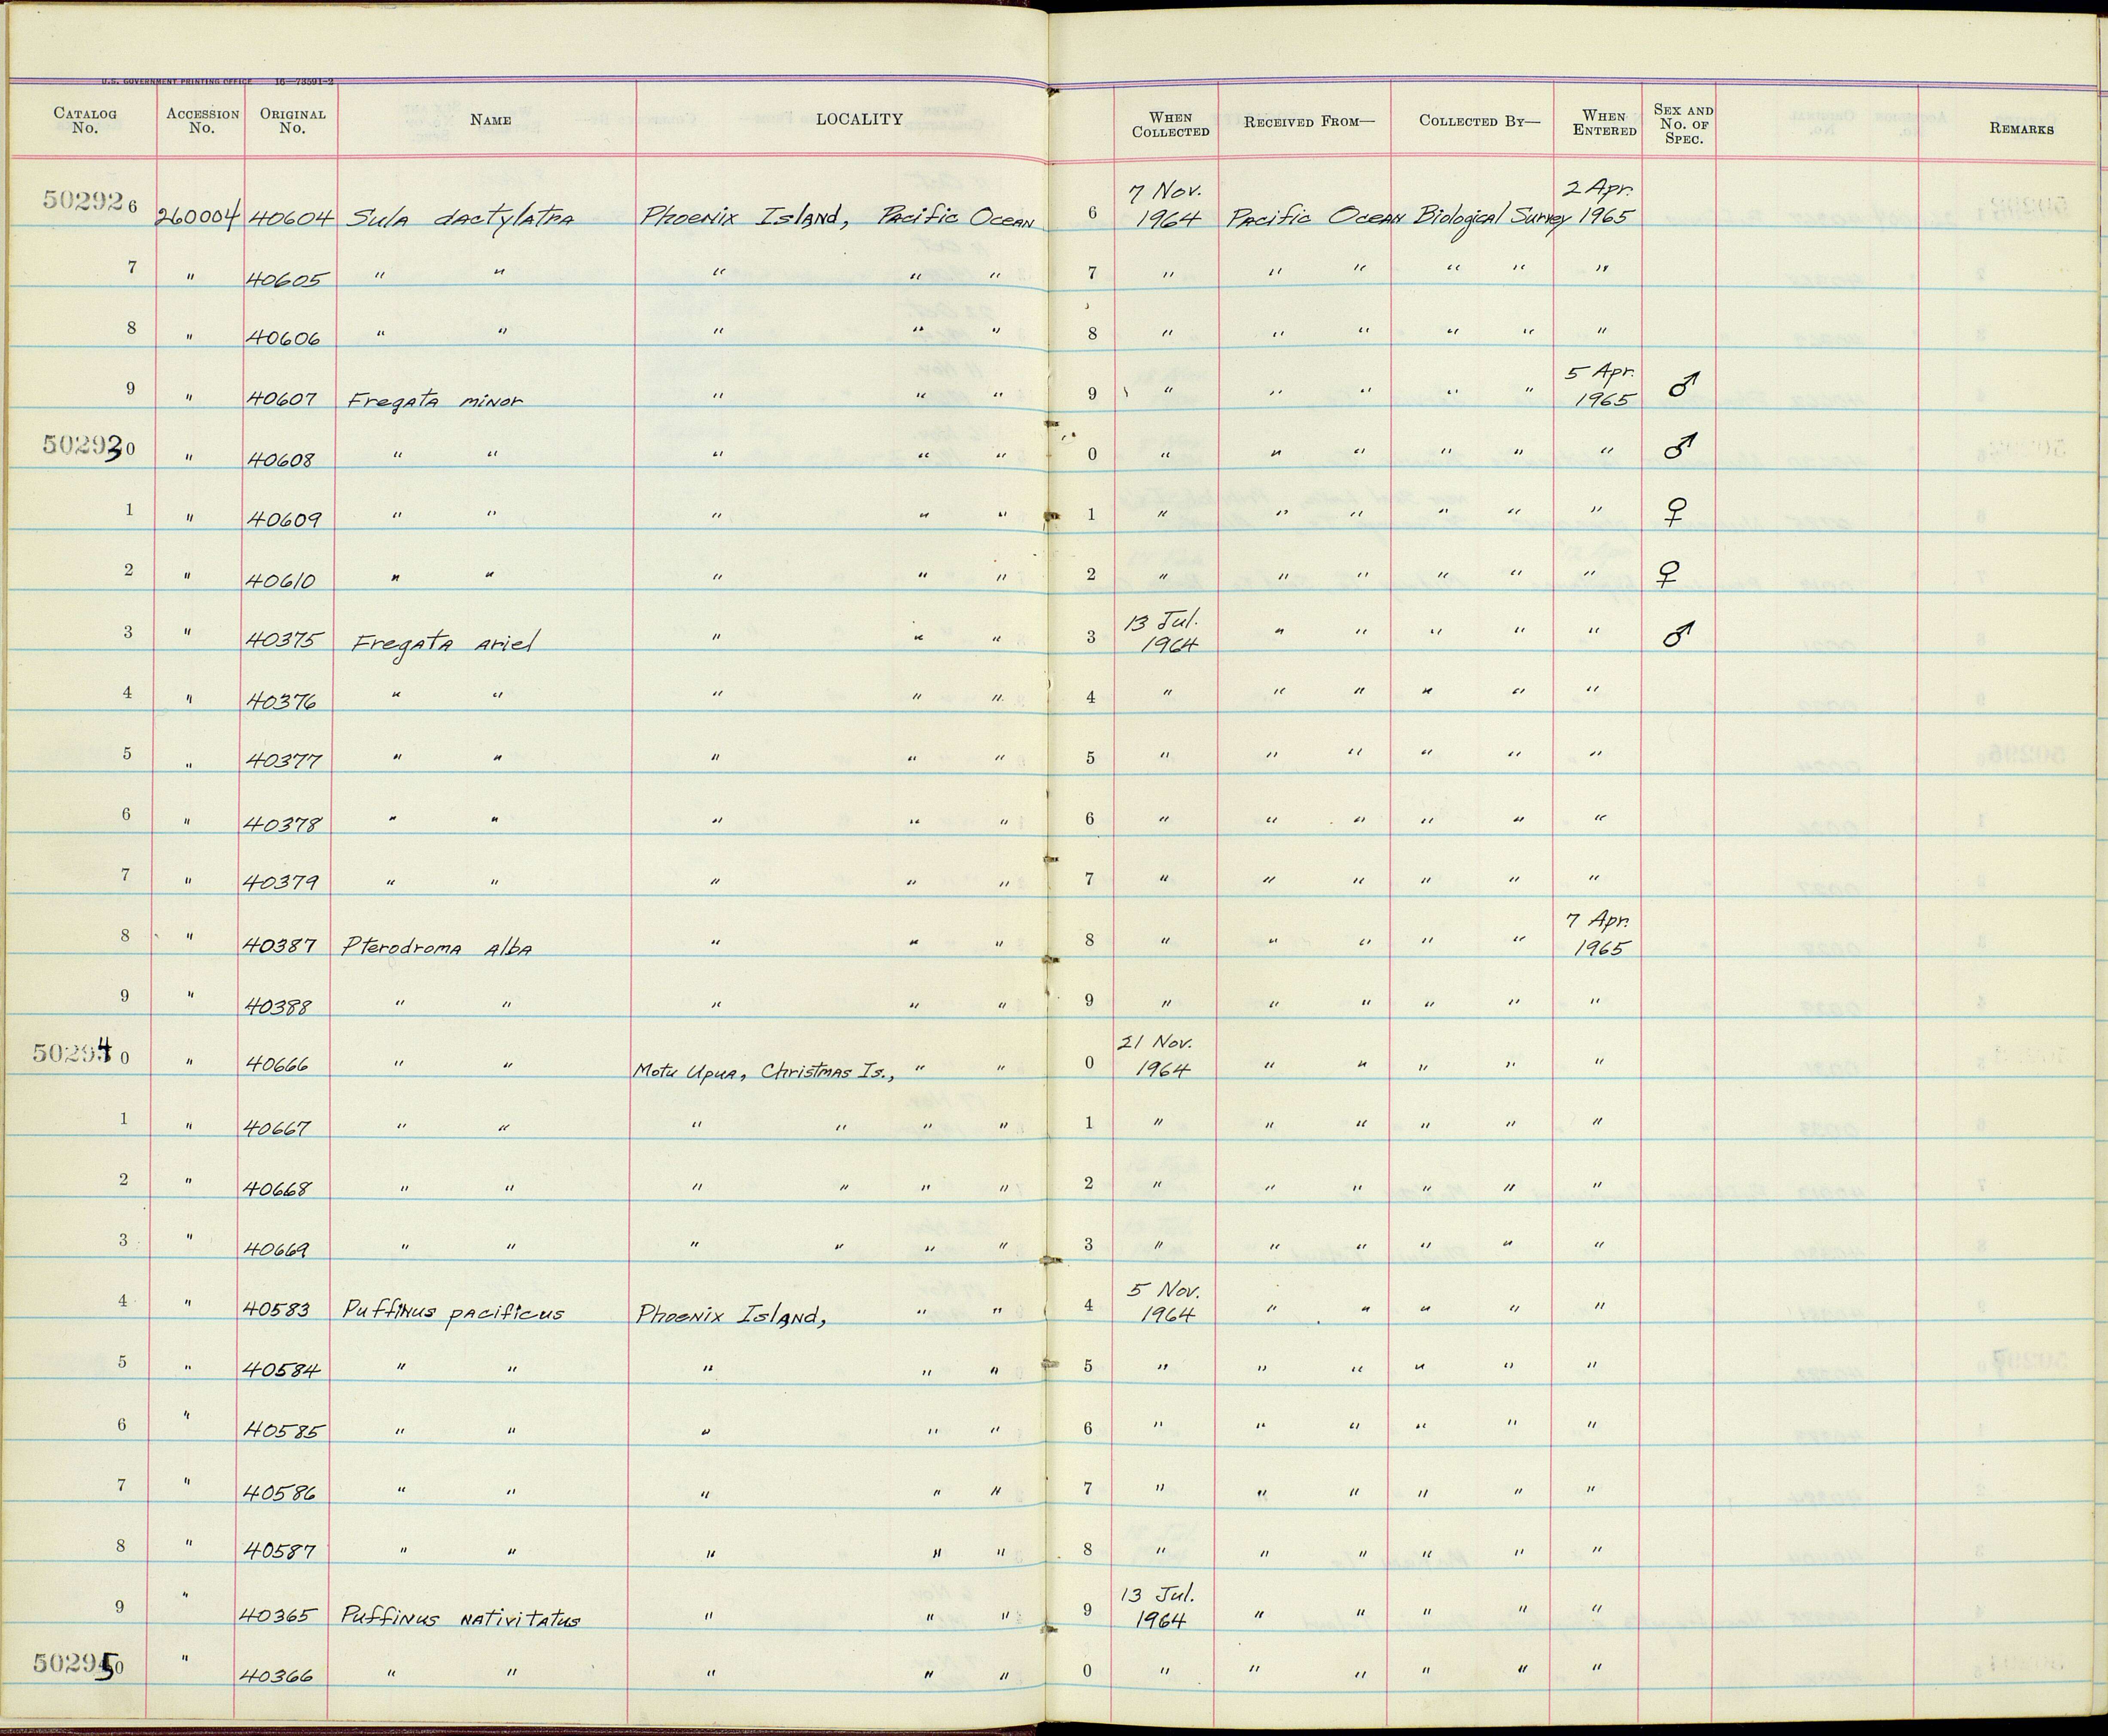 U.S. GOVERNMENT PRINTING OFFICE 16—73591-2
CATALOG No. ACCESSION No. ORIGINAL No. NAME LOCALITY WHEN COLLECTED RECEIVED FROM— COLLECTED BY— WHEN ENTERED SEX AND No. OF SPEC. REMARKS
502926 260004 40604 Sula dactylatra Phoenix Island, Pacific Ocean 6 7 Nov. 1964 Pacific Ocean Biological Survey 2 Apr. 1965
7 " 40605 " " " " " 7 " " " " " "
8 " 40606 " " " " " 8 " " " " " "
9 " 40607 Fregata minor " " " 9 " " " " " 5 Apr. 1965 ♂
502930 " 40608 " " " " " 0 " " " " " " ♂
1 " 40609 " " " " " 1 " " " " " " ♀
2 " 40610 " " " " " 2 " " " " " " ♀
3 " 40375 Fregata ariel " " " 3 13 Jul. 1964 " " " " " ♂
4 " 40376 " " " " " 4 " " " " " "
5 " 40377 " " " " " 5 " " " " " "
6 " 40378 " " " " " 6 " " " " " "
7 " 40379 " " " " " 7 " " " " " "
8 " 40387 Pterodroma alba " " " 8 " " " " " 7 Apr. 1965
9 " 40388 " " " " " 9 " " " " " "
502940 " 40666 " " Motu Upua, Christmas Is., " " 0 21 Nov. 1964 " " " " "
1 " 40667 " " " " " " 1 " " " " " "
2 " 40668 " " " " " " 2 " " " " " "
3 " 40669 " " " " " " 3 " " " " " "
4 " 40583 Puffinus pacificus Phoenix Island, " " 4 5 Nov. 1964 " " " " "
5 " 40584 " " " " " 5 " " " " " "
6 " 40585 " " " " " 6 " " " " " "
7 " 40586 " " " " " 7 " " " " " "
8 " 40587 " " " " " 8 " " " " " "
9 " 40365 Puffinus nativitatus " " " 9 13 Jul. 1964 " " " " "
502950 " 40366 " " " " " 0 " " " " " "